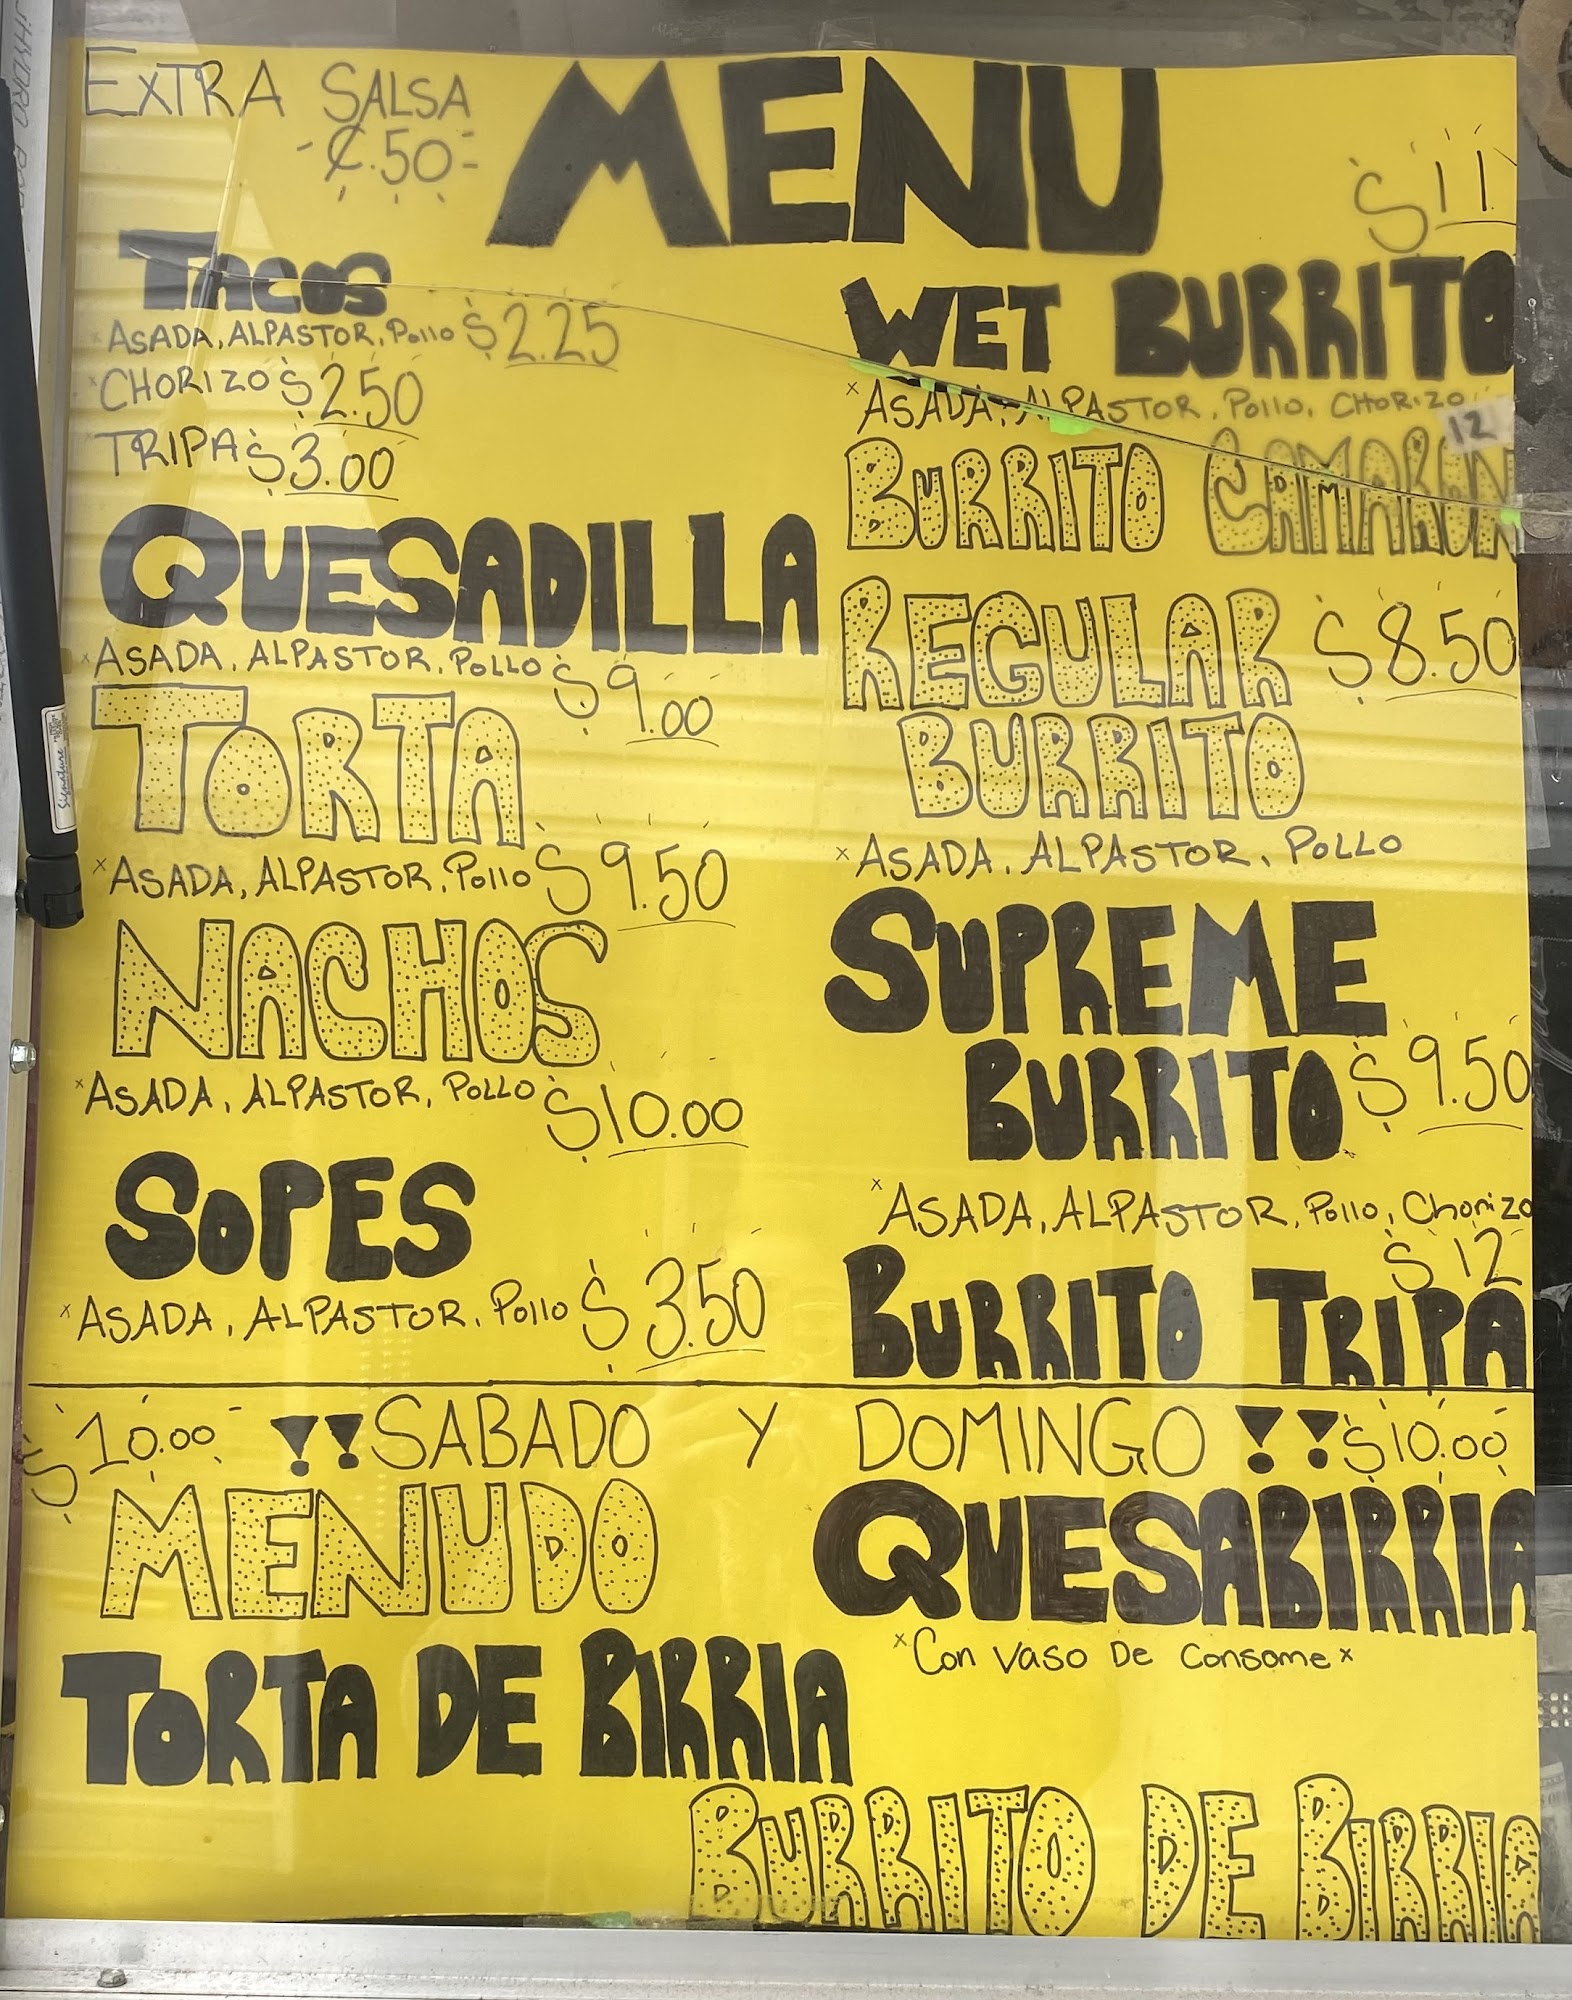 EXTRA SALSA
¢.50
MENU
TACOS
ASADA, ALPASTOR, Pollo $2.25
CHORIZO $2.50
TRIPA $3.00
QUESADILLA
ASADA, ALPASTOR, POLLO $9.00
TORTA
ASADA, ALPASTOR, Pollo $9.50
NACHOS
ASADA, ALPASTOR, POLLO $10.00
SOPES
ASADA, ALPASTOR, Pollo $3.50
$11
WET BURRITO
ASADA, ALPASTOR, Pollo, CHORIZO
12
BURRITO CAMARON
REGULAR $8.50
BURRITO
ASADA, ALPASTOR, POLLO
SUPREME
BURRITO $9.50
ASADA, ALPASTOR, Pollo, Chorizo
$12
BURRITO TRIPA
$10.00 !! SABADO Y DOMINGO !! $10.00
MENUDO
QUESABIRRIA
Con Vaso De Consome
TORTA DE BIRRIA
BURRITO DE BIRRIA
Signature